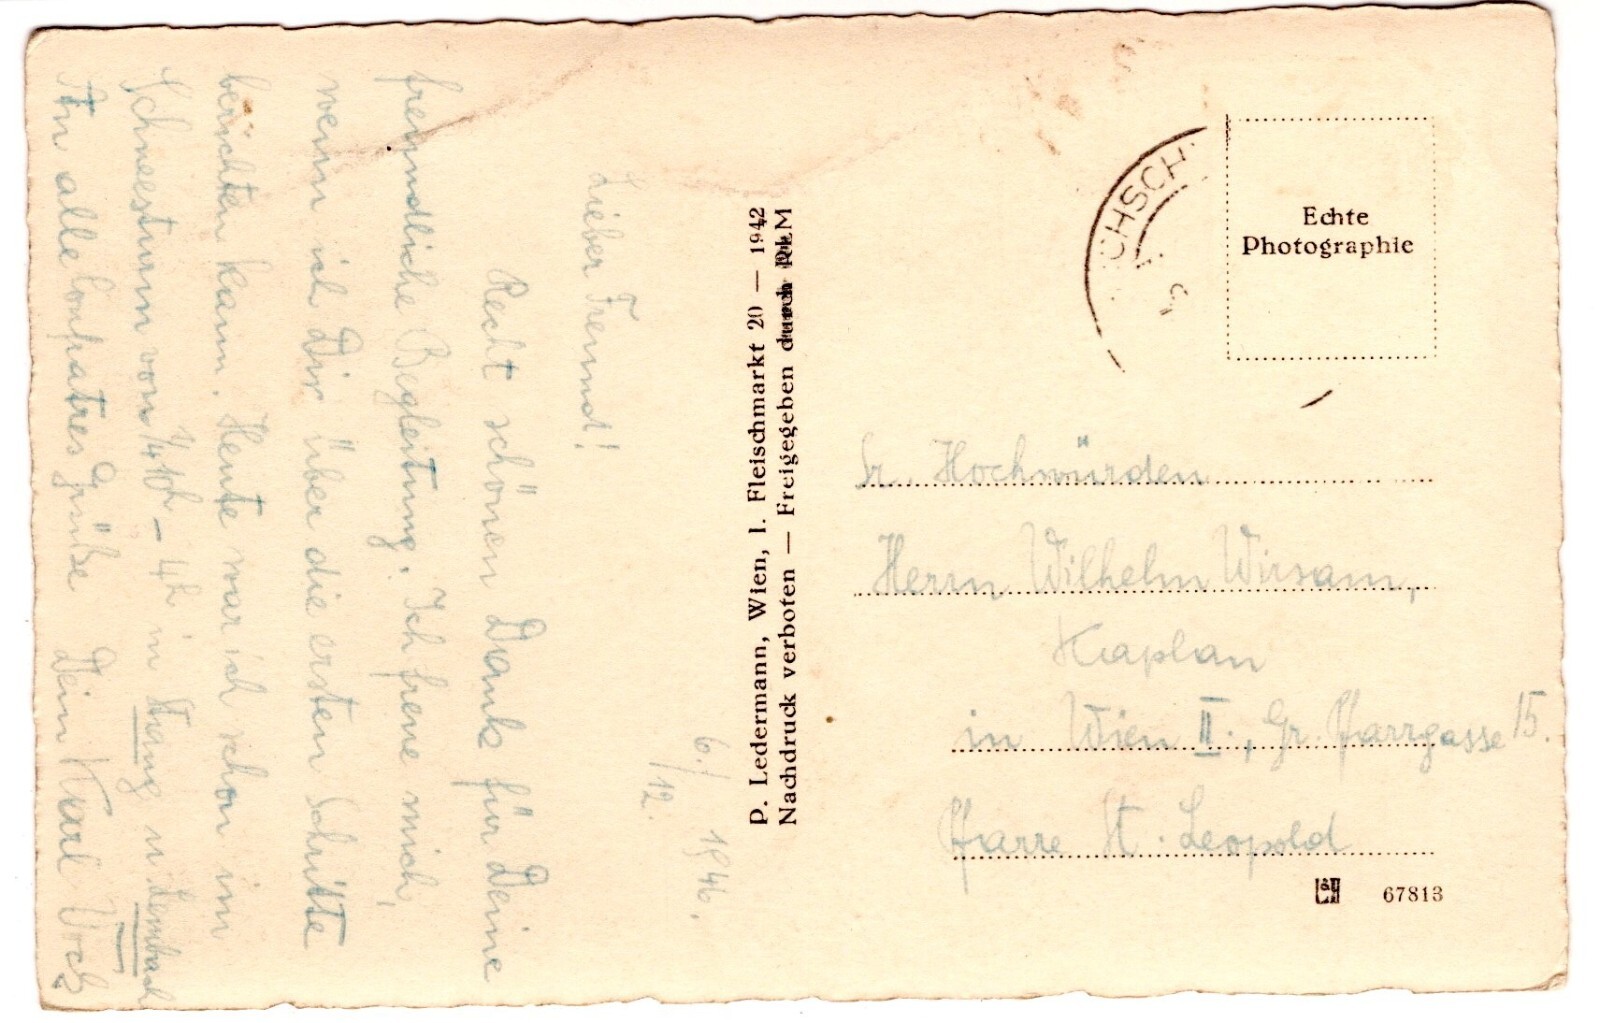 6./12. 1946.
Lieber Freund!
Recht schönen Dank für Deine
freundliche Begleitung. Ich freue mich,
wenn ich Dir über die ersten Schritte
berichten kann. Heute war ich schon im
Schneesturm von 1/4 10h - 4h in u. Lembach
An alle Conpatres Grüße Dein Karl
P. Ledermann, Wien, I. Fleischmarkt 20 — 1942
Nachdruck verboten — Freigegeben durch RLM
CHSCH
Echte
Photographie
Sr. Hochwürden
Herrn Wilhelm Wirsam,
Kaplan
in Wien II., Gr. Pfarrgasse 15.
Pfarre St. Leopold
67813